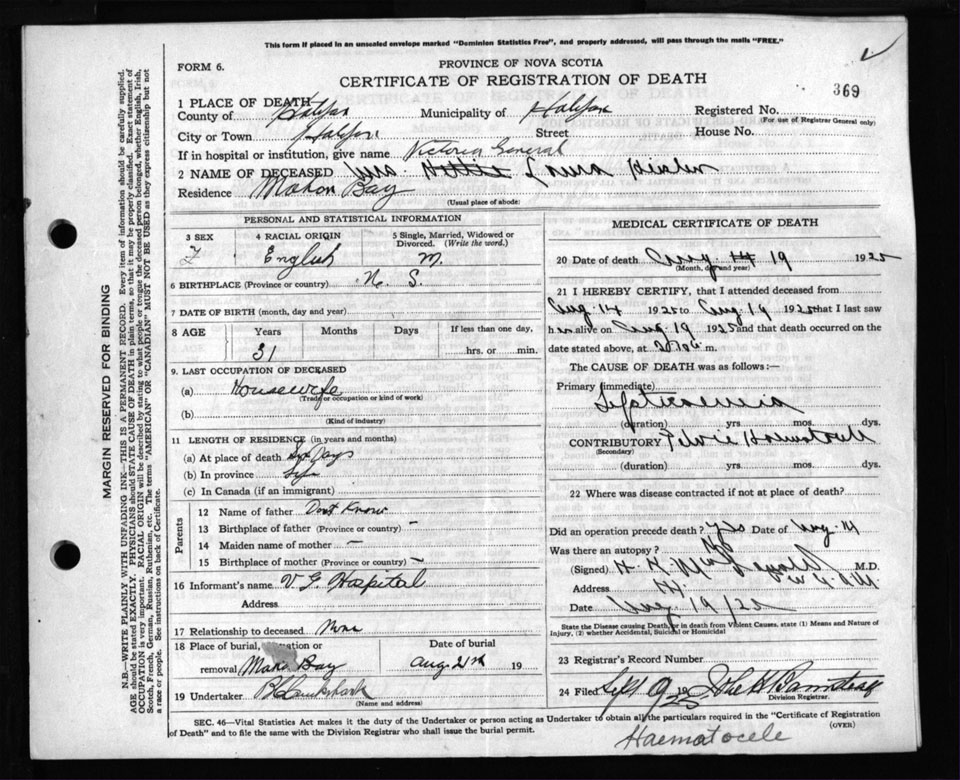 This form if placed in an unsealed envelope marked "Dominion Statistics Free", and properly addressed, will pass through the mails "FREE."
FORM 6.
PROVINCE OF NOVA SCOTIA
CERTIFICATE OF REGISTRATION OF DEATH
369
1 PLACE OF DEATH
County of Halifax Municipality of Halifax Registered No.
(For use of Registrar General only)
City or Town Halifax Street House No.
If in hospital or institution, give name Victoria General
2 NAME OF DECEASED Mrs Hattie Laura
Residence Mahon Bay
(Usual place of abode)
PERSONAL AND STATISTICAL INFORMATION
3 SEX 4 RACIAL ORIGIN 5 Single, Married, Widowed or Divorced. (Write the word.)
F English M.
6 BIRTHPLACE (Province or country) N. S.
7 DATE OF BIRTH (month, day and year)
8 AGE Years Months Days If less than one day,
31 hrs. or min.
9. LAST OCCUPATION OF DECEASED
(a) Housewife
(Trade or occupation or kind of work)
(b)
(Kind of industry)
11 LENGTH OF RESIDENCE (in years and months)
(a) At place of death Days
(b) In province
(c) In Canada (if an immigrant)
Parents
12 Name of father Dont Know
13 Birthplace of father (Province or country) –
14 Maiden name of mother –
15 Birthplace of mother (Province or country) –
16 Informant's name V. G. Hospital
Address
17 Relationship to deceased None
18 Place of burial, cremation or removal Date of burial
Bay Aug 21st 19
19 Undertaker
(Name and address)
MEDICAL CERTIFICATE OF DEATH
20 Date of death Aug 19 1925
(Month, day and year)
21 I HEREBY CERTIFY, that I attended deceased from
Aug 14 1925 to Aug 19 1925 that I last saw
h er alive on Aug 19 1925 and that death occurred on
date stated above, at m.
The CAUSE OF DEATH was as follows:—
Primary (immediate)
Septicaemia
(duration) yrs mos. dys.
CONTRIBUTORY Pelvic Haematocele
(Secondary)
(duration) yrs mos. dys.
22 Where was disease contracted if not at place of death?
Did an operation precede death? Yes Date of Aug. 14
Was there an autopsy? No
(Signed) M.D.
Address
Date Aug 19/25
State the Disease causing Death, or in death from Violent Causes, state (1) Means and Nature of
Injury, (2) whether Accidental, Suicidal or Homicidal
23 Registrar's Record Number
24 Filed Sept 9 1925
Division Registrar.
SEC. 46—Vital Statistics Act makes it the duty of the Undertaker or person acting as Undertaker to obtain all the particulars required in the "Certificate of Registration
of Death" and to file the same with the Division Registrar who shall issue the burial permit.
(OVER)
Haematocele
MARGIN RESERVED FOR BINDING
N.B.—WRITE PLAINLY WITH UNFADING INK—THIS IS A PERMANENT RECORD. Every item of information should be carefully supplied.
AGE should be stated EXACTLY. PHYSICIANS should STATE CAUSE OF DEATH in plain terms, so that it may be properly classified. Exact statement of
OCCUPATION is very important. RACIAL ORIGIN will be described by stating to what people or tongue the deceased person belonged, whether English, Irish,
Scotch, French, German, Russian, Ruthenian, etc. The terms "AMERICAN" or "CANADIAN" MUST NOT BE USED as they express citizenship but not
a race or people. See instructions on back of Certificate.